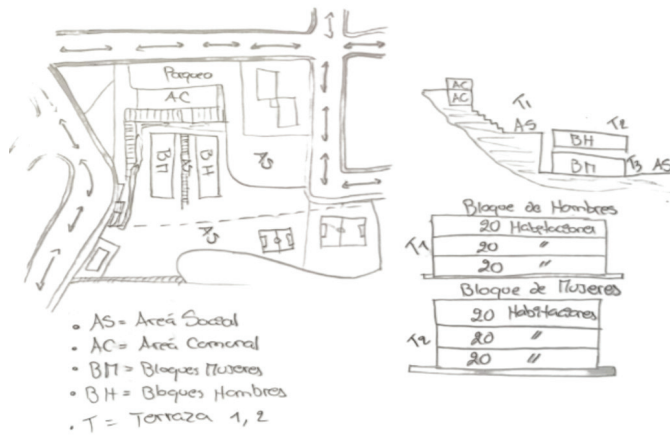 Parqueo
AC
BM
BH
AS
AS
AS
AC
AC
T1
AS
T2
BH
BM
T3
AS
Bloque de Hombres
T1
20 Habitaciones
20 "
20 "
Bloque de Mujeres
T2
20 Habitaciones
20 "
20 "
• AS = Areá Social
• AC = Areá Comunal
• BM = Bloques Mujeres
• BH = Bloques Hombres
• T = Terraza 1, 2